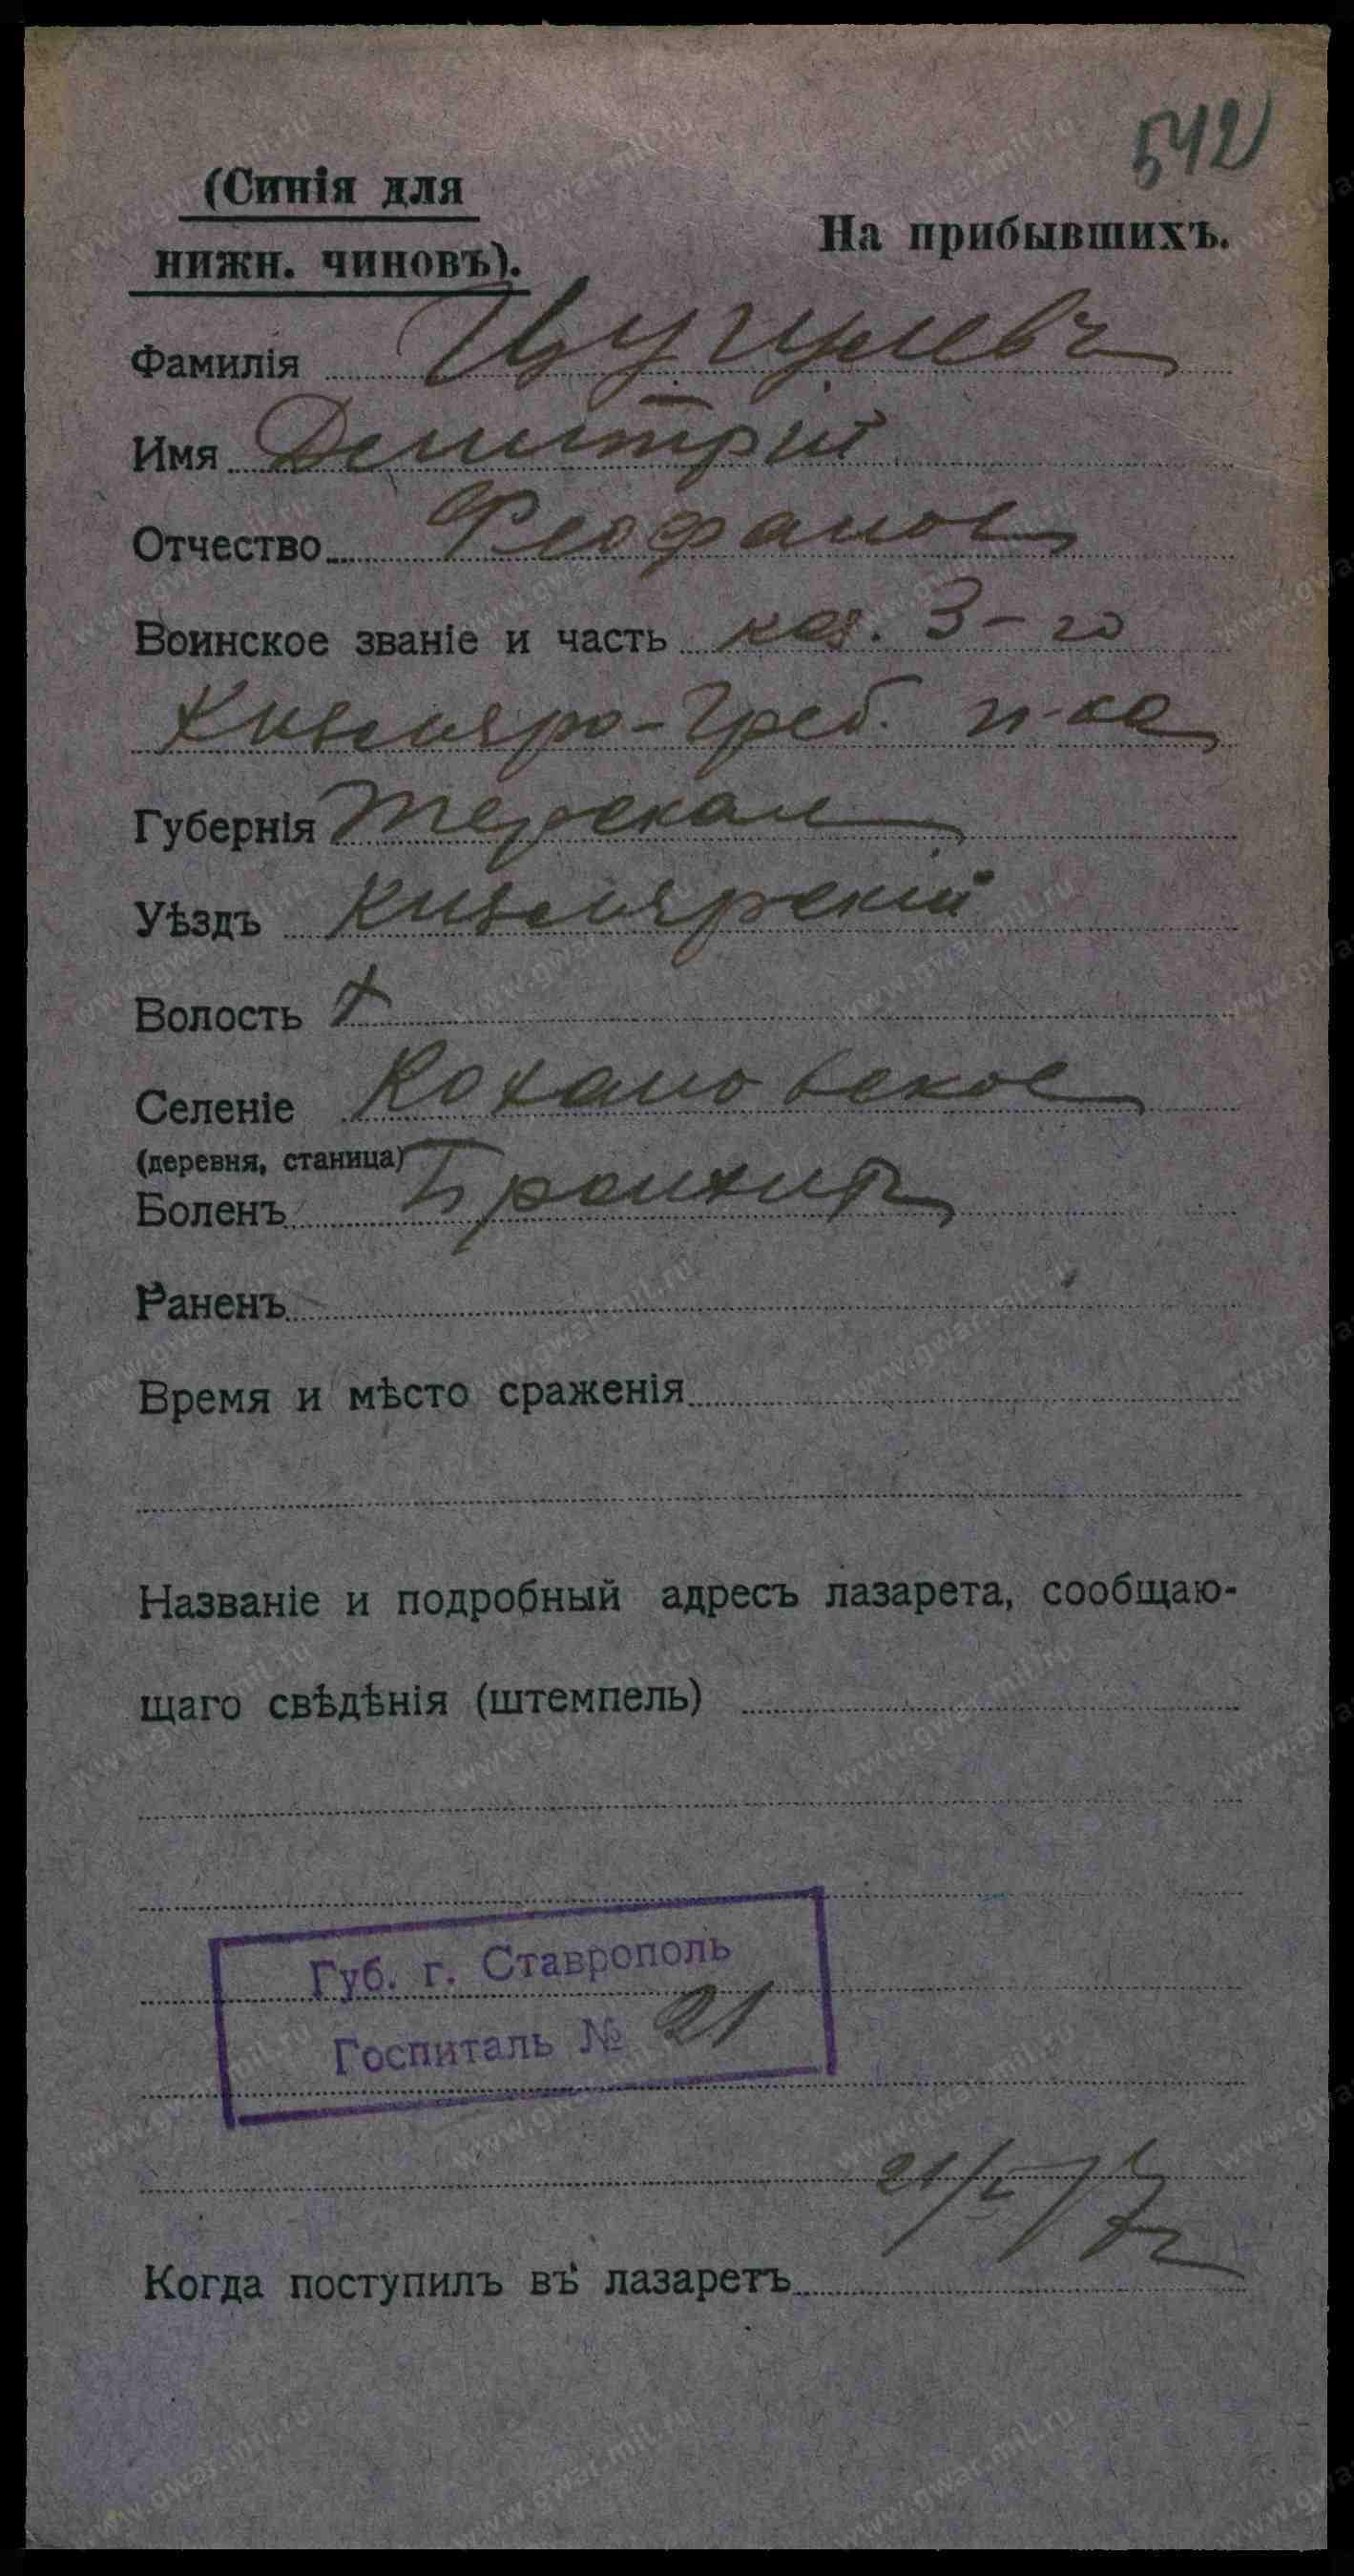 542
(Синія для
нижн. чиновъ).
На прибывшихъ.
Фамилія
Имя Демитрий
Отчество Феофанов
Воинское званіе и часть каз. 3-го
Кизляро-Греб. п-ка
Губернія Терская
Уѣздъ Кизлярскій
Волость
Селеніе Кохановское
(деревня, станица)
Боленъ Бронхит
Раненъ
Время и мѣсто сраженія
Названіе и подробный адресъ лазарета, сообщаю-
щаго свѣдѣнія (штемпель)
Губ. г. Ставрополь
Госпиталь № 21
Когда поступилъ въ лазаретъ